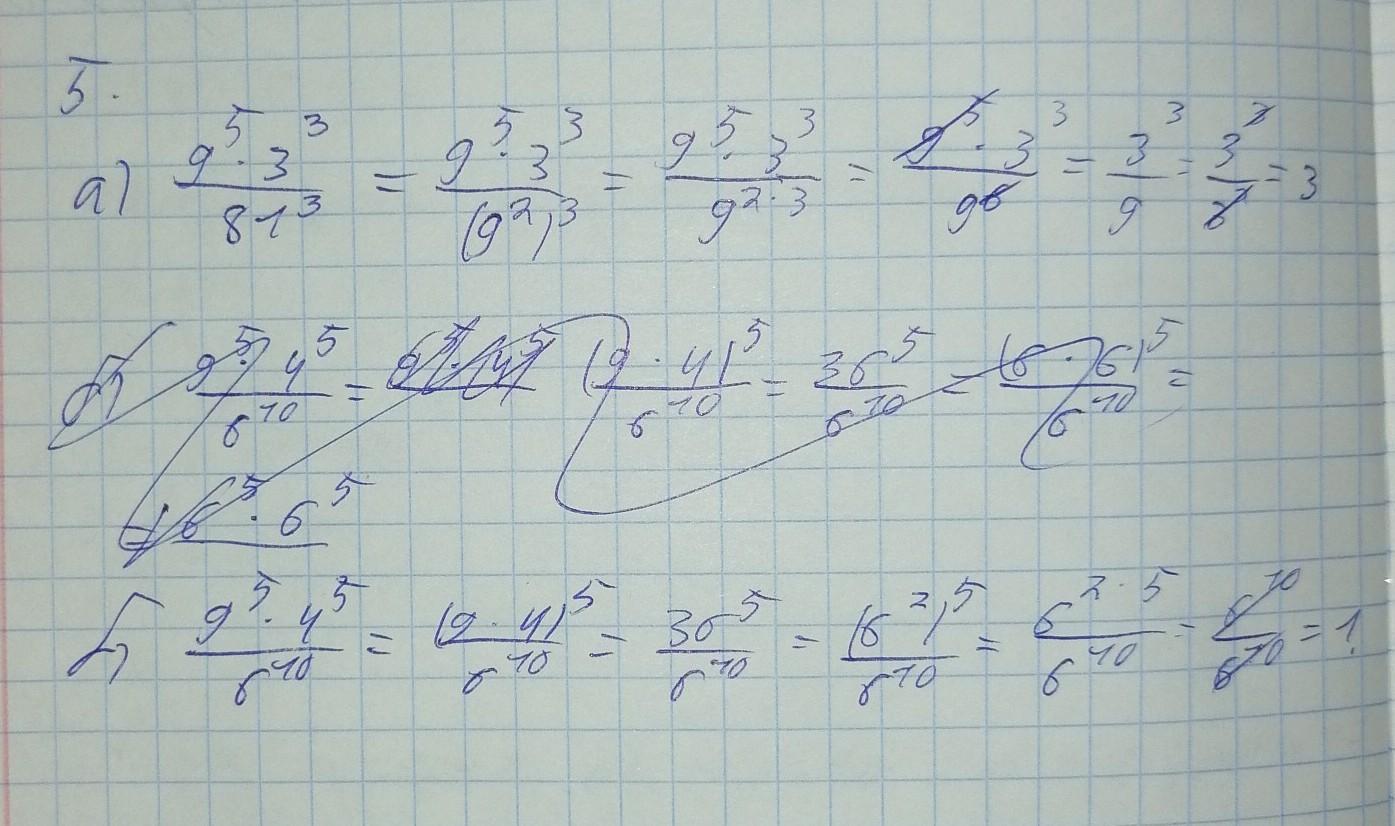 5.
а) 9^5 · 3^3 / 81^3 = 9^5 · 3^3 / (9^2)^3 = 9^5 · 3^3 / 9^{2·3} = 9^5 · 3^3 / 9^6 = 3^3 / 9 = = 3
б) 9^5 · 4^5 / 6^{10} = (9 · 4)^5 / 6^{10} = 36^5 / 6^{10} = (6 · 6)^5 / 6^{10} =
6^5 · 6^5
б) 9^5 · 4^5 / 6^{10} = (9 · 4)^5 / 6^{10} = 36^5 / 6^{10} = (6^2)^5 / 6^{10} = 6^{2·5} / 6^{10} = 6^{10} / 6^{10} = 1.